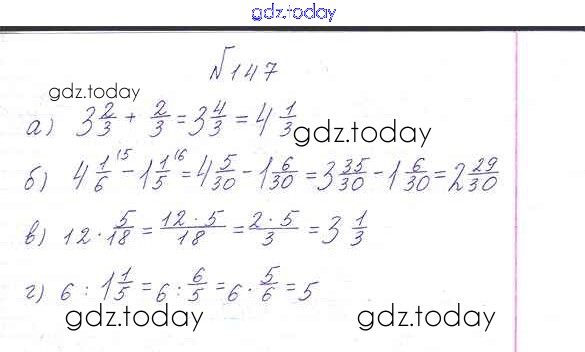 gdz.today
№147
gdz.today
а) 3 2/3 + 2/3 = 3 4/3 = 4 1/3
gdz.today
б) 4 1/6 ⁽⁵ - 1 1/5 ⁽⁶ = 4 5/30 - 1 6/30 = 3 35/30 - 1 6/30 = 2 29/30
в) 12 · 5/18 = 12 · 5/18 = 2 · 5/3 = 3 1/3
г) 6 : 1 1/5 = 6 : 6/5 = 6 · 5/6 = 5
gdz.today gdz.today